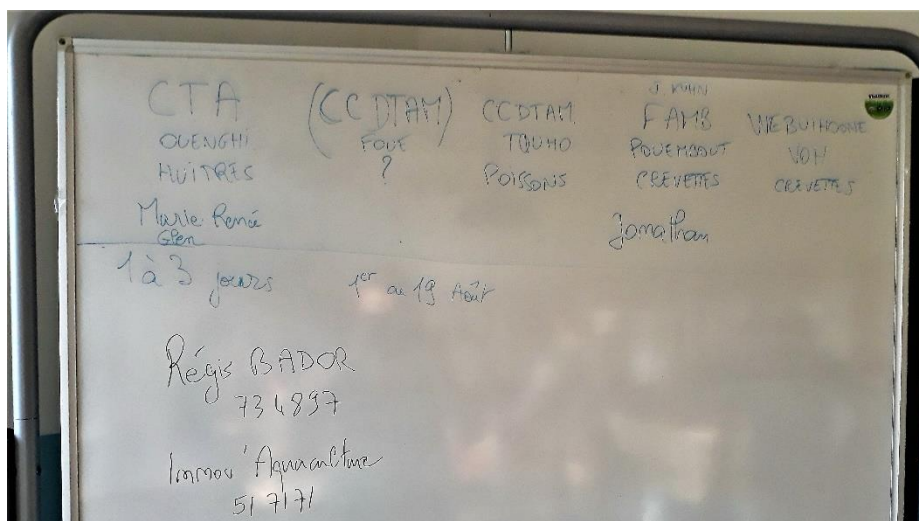 CTA
OUENGHI
HUITRES
Marie-René
Glen
(CCDTAM)
FOUE
?
CCDTAM
TOUHO
POISSONS
J KUHN
FAMB
POUEMBOUT
CREVETTES
Jonathan
WEBUIHOONE
VOH
CREVETTES
1 à 3 jours
1er au 19 Août
Régis BADOR
734897
Innov'Aquaculture
517171